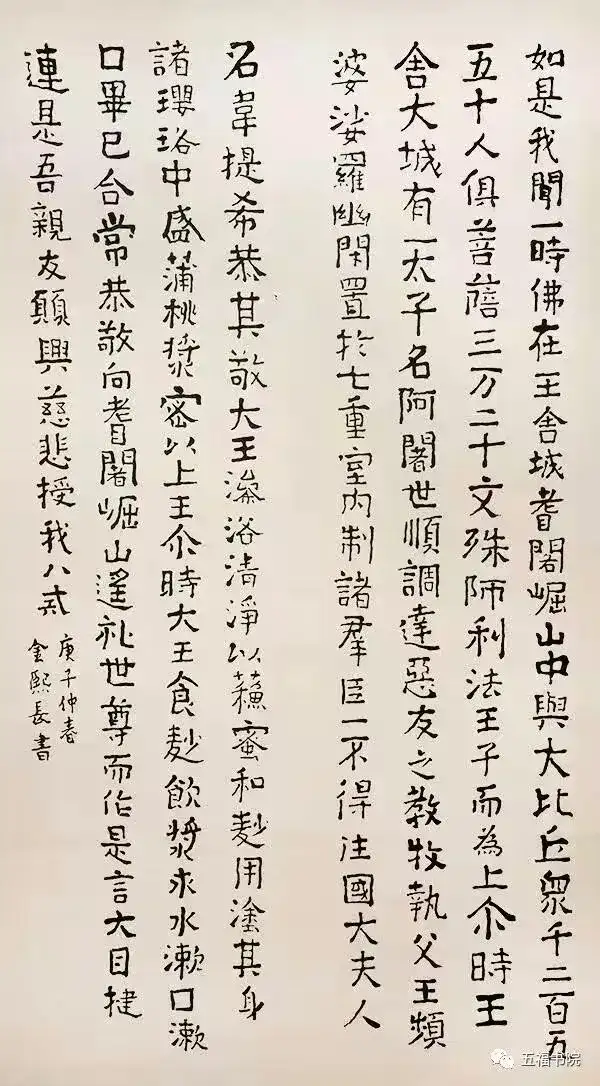 如是我聞一時佛在王舍城耆闍崛山中與大比丘眾千二百五
五十人俱菩薩三万二十文殊师利法王子而為上尒時王
舍大城有一太子名阿闍世順調達惡友之教牧執父王頻
婆娑羅幽閉置扵七重室内制諸羣臣一不得往國大夫人
名韋提希恭其敬大王澡浴清淨以蘓蜜和麨用塗其身
諸瓔珞中盛蒲桃漿密以上王尒時大王食麨飲漿求水漱口漱
口畢已合常恭敬向耆闍崛山遥礼世尊而作是言大目揵
連是吾親友願興慈悲授我八戒
庚子仲春
金熙長書
五福书院